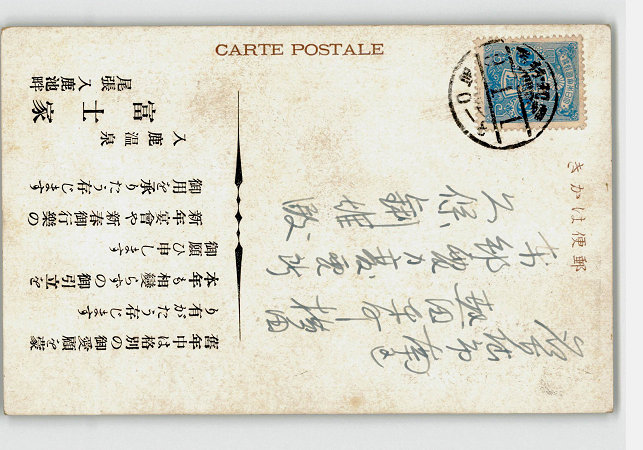 CARTE POSTALE
郵便はかき
名古屋市南区
東邦電力変電所
舊年中は格別の御愛顧を蒙
り有がたう存じます
本年も相變らずの御引立を
御願ひ申します
新年宴會や新春御行樂の
御用を承りたう存じます
入鹿温泉
富士家
尾張入鹿池畔